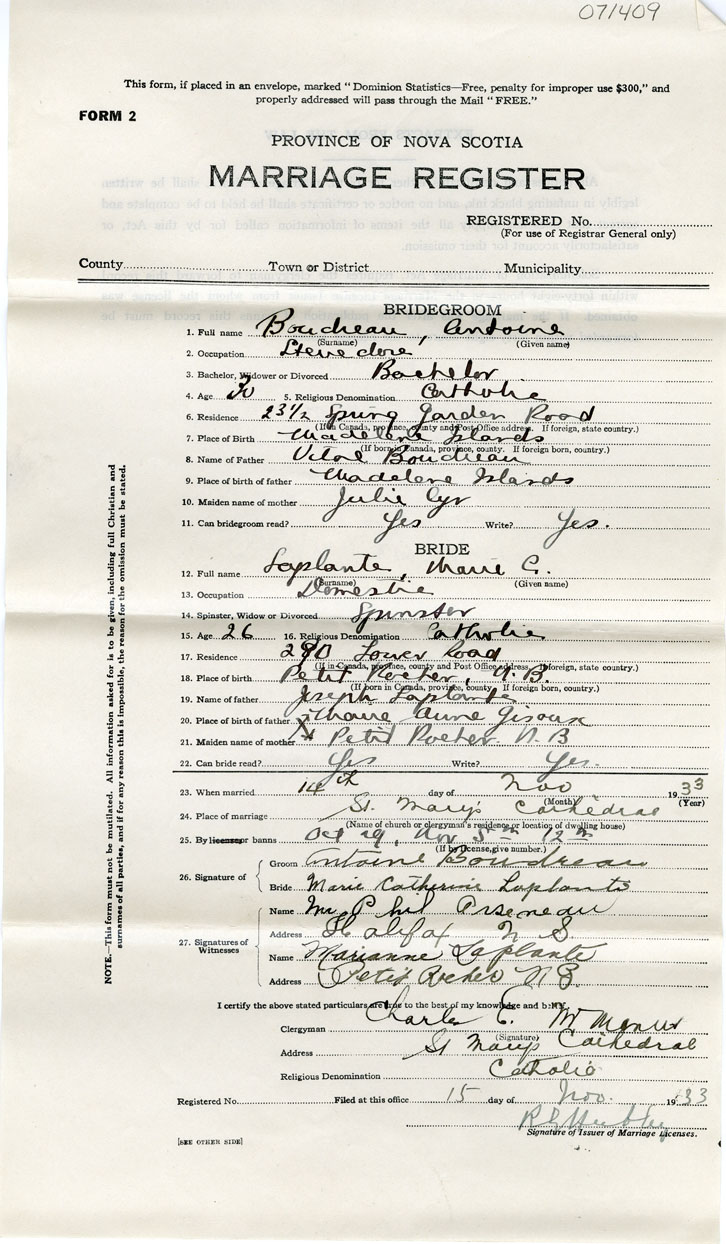 071409
This form, if placed in an envelope, marked "Dominion Statistics—Free, penalty for improper use $300," and
properly addressed will pass through the Mail "FREE."
FORM 2
PROVINCE OF NOVA SCOTIA
MARRIAGE REGISTER
REGISTERED No.
(For use of Registrar General only)
County Town or District Municipality
BRIDEGROOM
1. Full name Boudreau, Antoine
(Surname) (Given name)
2. Occupation Stevedore
3. Bachelor, Widower or Divorced Bachelor
4. Age 30 5. Religious Denomination Catholic
6. Residence 23½ Spring Garden Road
(If in Canada, province, county and Post Office address. If foreign, state country.)
7. Place of Birth Madelene Islands
(If born in Canada, province, county. If foreign born, country.)
8. Name of Father Vital Boudreau
9. Place of birth of father Madelene Islands
10. Maiden name of mother Julie Cyr
11. Can bridegroom read? Yes Write? Yes.
BRIDE
12. Full name Laplante, Marie C.
(Surname) (Given name)
13. Occupation Domestic
14. Spinster, Widow or Divorced Spinster
15. Age 26 16. Religious Denomination Catholic
17. Residence 290 Tower Road
(If in Canada, province, county and Post Office address. If foreign, state country.)
18. Place of birth Petit Rocher, N.B.
(If born in Canada, province, county. If foreign born, country.)
19. Name of father Joseph Laplante
20. Place of birth of father Marie Anne
21. Maiden name of mother Petit Rocher N.B
22. Can bride read? Yes Write? Yes.
23. When married 14th day of Nov 1933
(Month) (Year)
24. Place of marriage St. Mary's Cathedral
(Name of church or clergyman's residence or location of dwelling house)
25. By license or banns Oct 29, Nov 5th 12th
(If by license, give number.)
26. Signature of
Groom Antoine Boudreau
Bride Marie Catherine Laplante
27. Signatures of Witnesses
Name Mr Phil Arseneau
Address Halifax N S.
Name Marianne Laplante
Address Petit Rocher N B.
I certify the above stated particulars are true to the best of my knowledge and belief.
Clergyman Charles C. McManus
(Signature)
Address St Marys Cathedral
Religious Denomination Catholic
Registered No. Filed at this office 15 day of Nov. 1933
Signature of Issuer of Marriage Licenses.
[SEE OTHER SIDE]
NOTE.—This form must not be mutilated. All information asked for is to be given, including full Christian and
surnames of all parties, and if for any reason this is impossible, the reason for the omission must be stated.